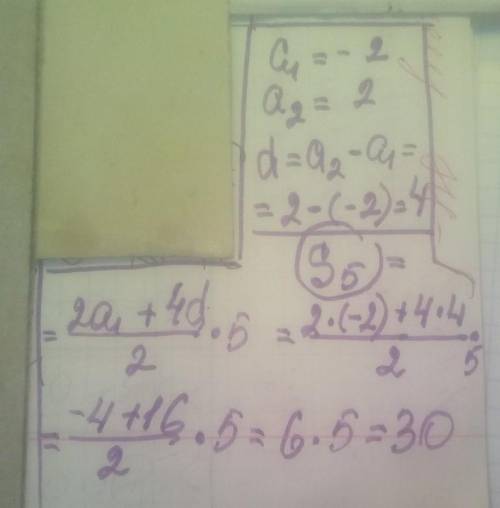 a₁ = - 2
a₂ = 2
d = a₂ - a₁ =
= 2 - (-2) = 4
S₅ =
= (2a₁ + 4d)/2 · 5 = (2·(-2) + 4·4)/2 · 5
= (-4 + 16)/2 · 5 = 6 · 5 = 30